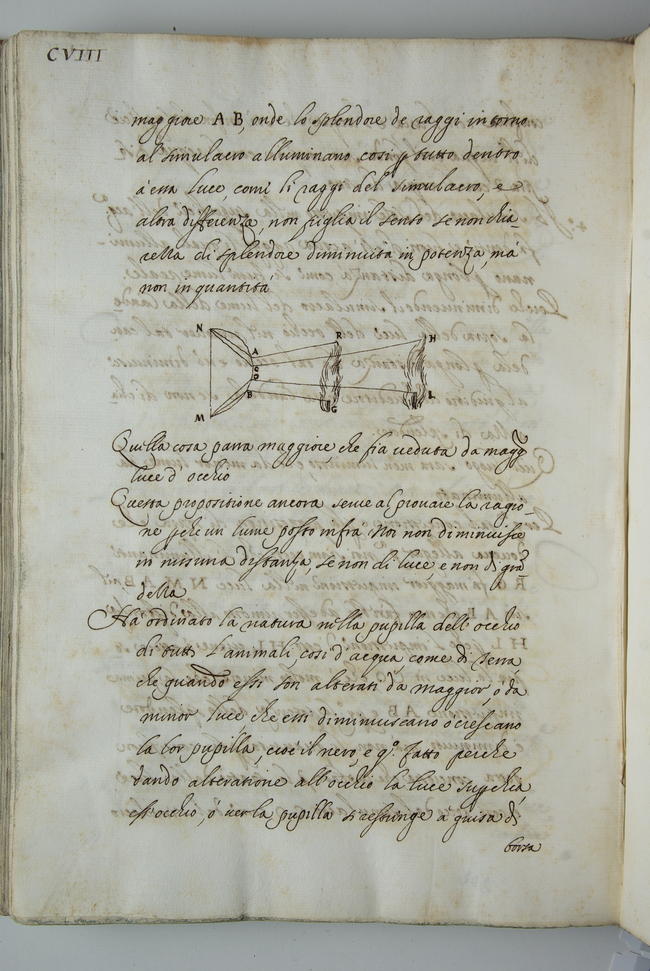 CVIII
maggiore A B, onde lo splendore de raggi intorno
al simulacro alluminano cosi ꝑ tutto dentro
à essa luce, come li raggi del simulacro, e
altra differenza, non piglia il senso se non chia-
rezza di splendore diminuita in potenza, mà
non in quantità
N
A
R
H
C
D
B
L
G
M
Quella cosa parra maggiore, che fia veduta da magg.r
luce d'occhio
Questa propositione ancora serve al provare la ragio-
ne ꝑche un lume posto infra Noi non diminuisce
in nissuna distanza, se non di luce, e non di gran
dezza
Ha ordinato la natura nella pupilla dell'occhio
di tutti l'animali, cosi d'acqua, come di terra
che quando essi son alterati da maggior, ò da
minor luce che essi diminuiscano ò crescano
la lor pupilla, cioè il nero, e q.o fatto perche
dando alteratione all'occhio la luce supchia
ess'occhio, ò ver la pupilla si restringe à guisa di
borsa